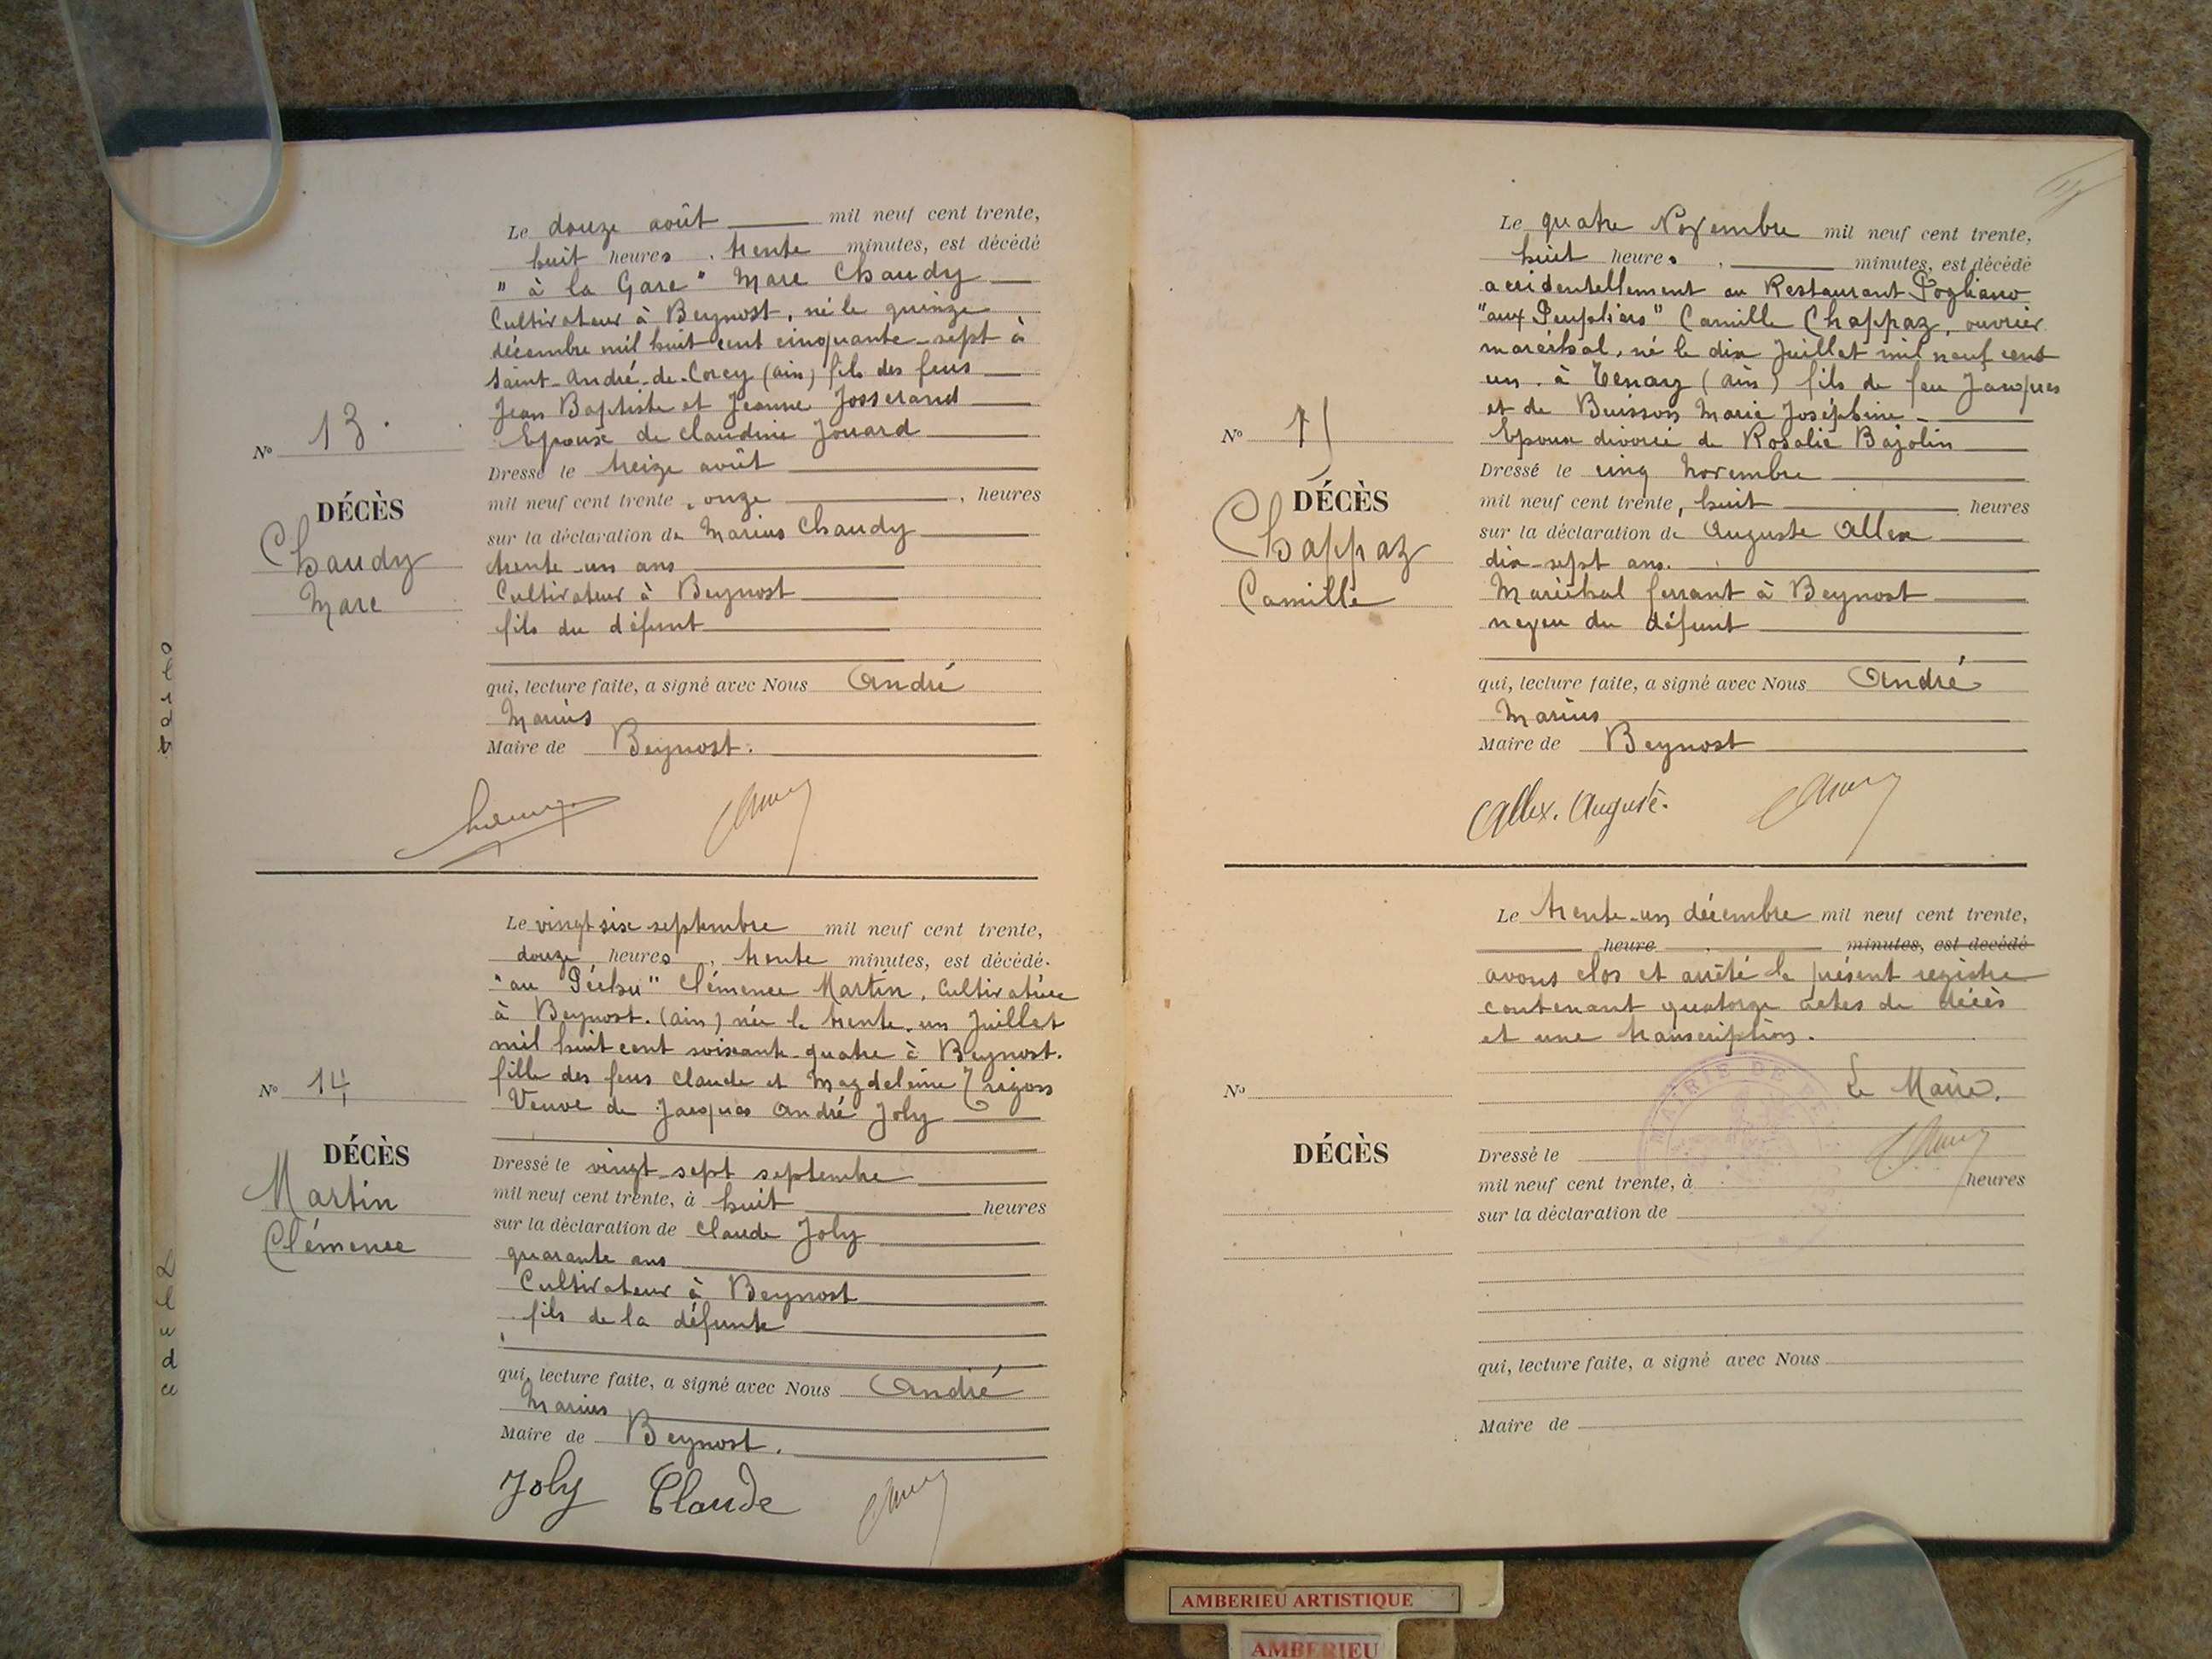 Le douze août mil neuf cent trente,
huit heures, trente minutes, est décédé
" à la Gare " Marc Chaudy
Cultivateur à Beynost, né le quinze
décembre mil huit cent cinquante-sept à
Saint-André-de-Corcy (ain) fils des feus
Jean Baptiste et Jeanne Josserand
Epoux de Claudine Jouard
No 13.
DÉCÈS
Chaudy
Marc
Dressé le treize août
mil neuf cent trente, onze, heures
sur la déclaration de Marius Chaudy
trente-un ans
Cultivateur à Beynost
fils du défunt
qui, lecture faite, a signé avec Nous André
Marius
Maire de Beynost.
Le vingt six septembre mil neuf cent trente,
douze heures, trente minutes, est décédé
"au Péchu" Clémence Martin, Cultivatrice
à Beynost. (ain) née le trente-un Juillet
mil huit cent soixante-quatre à Beynost.
fille des feus Claude et Magdeleine Trigon
Veuve de Jacques André Joly
No 14
DÉCÈS
Martin
Clémence
Dressé le vingt-sept septembre
mil neuf cent trente, à huit heures
sur la déclaration de Claude Joly
quarante ans
Cultivateur à Beynost
fils de la défunte
qui, lecture faite, a signé avec Nous André
Marius
Maire de Beynost.
Joly Claude
Le quatre Novembre mil neuf cent trente,
huit heures, minutes, est décédé
accidentellement au Restaurant Pogliano
"aux Peupliers" Camille Chappaz, ouvrier
maréchal, né le dix Juillet mil neuf cent
un à Tenay (ain) fils de feu Jacques
et de Buisson Marie Joséphine
Epoux divorcé de Rosalie Bajolin
No 15
DÉCÈS
Chappaz
Camille
Dressé le cinq novembre
mil neuf cent trente, huit heures
sur la déclaration de Auguste Allex
dix-sept ans.
Maréchal ferrant à Beynost
neveu du défunt
qui, lecture faite, a signé avec Nous André
Marius
Maire de Beynost
Allex. Auguste.
Le trente-un décembre mil neuf cent trente,
heure minutes, est décédé
avons clos et arrêté le présent registre
contenant quatorze actes de décès
et une transcription.
MAIRIE DE
Le Maire.
No
DÉCÈS
Dressé le
mil neuf cent trente, à heures
sur la déclaration de
qui, lecture faite, a signé avec Nous
Maire de
AMBERIEU ARTISTIQUE
AMBERIEU